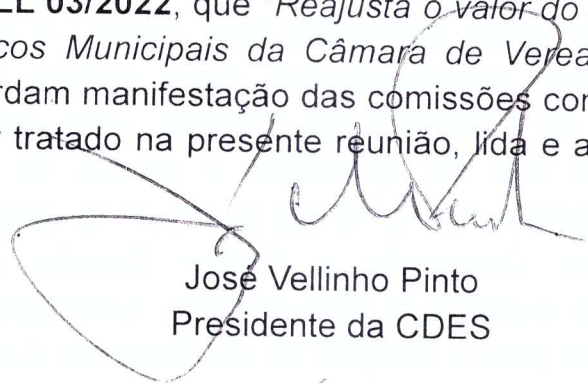 LL 03/2022, que "Reajusta o valor do
cos Municipais da Câmara de Verea
rdam manifestação das comissões cor
tratado na presente reunião, lida e a
José Vellinho Pinto
Presidente da CDES